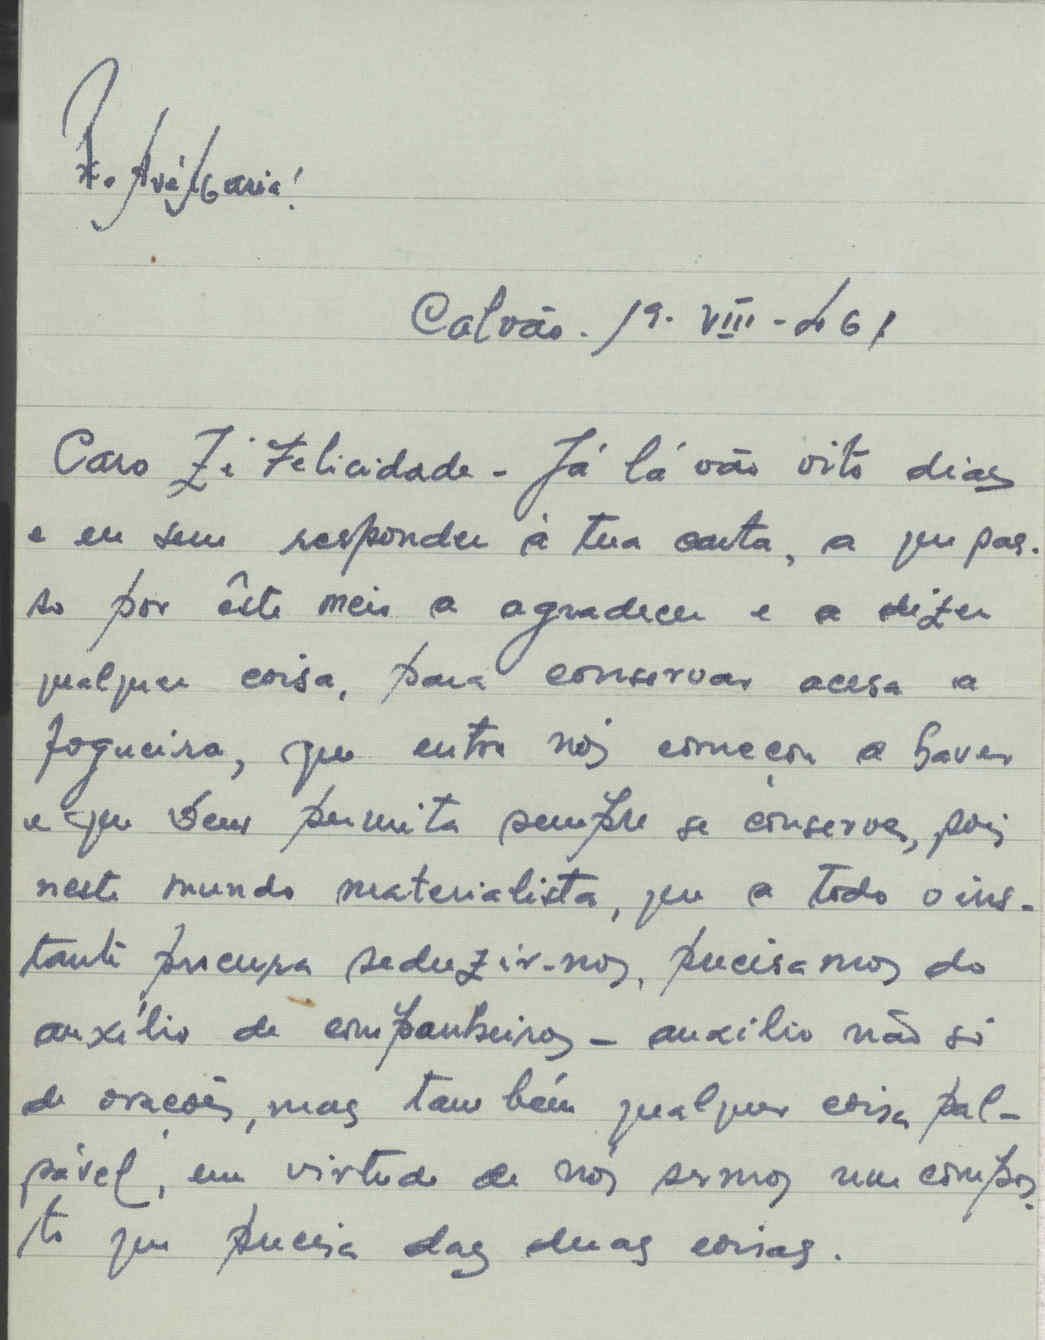 Avé Maria!
Calvão. 19-VIII-de 61
Caro Zé Felicidade - Já lá vão oito dias
e eu sem responder à tua carta, a que pas-
so por êste meio a agradecer e a dizer
qualquer coisa, para conservar acesa a
fogueira, que entre nós começou a haver
e que Deus permita sempre se conserve, pois
neste mundo materialista, que a todo o ins-
tante procura seduzir-nos, precisamos do
auxílio de companheiros - auxílio não só
de orações, mas também qualquer coisa pal-
pável, em virtude de nós sermos um compos-
to que precisa das duas coisas.